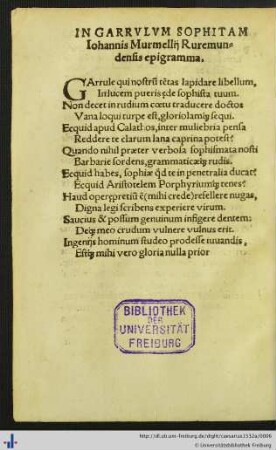 IN GARRVLVM SOPHITAM
Iohannis Murmellij Ruremun-
densis epigramma.
GArrule qui nostrũ tẽtas lapidare libellum,
In lucem pueris ęde sophista tuum.
Non decet in rudium cœtu traducere doctos
Vana loqui turpe est, gloriolamq; sequi.
Ecquid apud Calathos, inter muliebria pensa
Reddere te clarum lana caprina potest?
Quando nihil præter verbosa sophismata nosti
Barbarie sordens, grammaticæq; rudis.
Ecquid habes, sophiæ qd te in penetralia ducat?
Ecquid Aristotelem Porphyriumq; tenes?
Haud operępretiũ ẽ (mihi crede) refellere nugas,
Digna legi scribens experiere virum.
Saucius & possum genuinum infigere dentem:
Deq; meo crudum vulnere vulnus erit.
Ingenijs hominum studeo prodesse iuuandis,
Estq; mihi vero gloria nulla prior
BIBLIOTHEK
DER
UNIVERSITÄT
FREIBURG
http://dl.ub.uni-freiburg.de/diglit/caesarius1532a/0006
© Universitätsbibliothek Freiburg